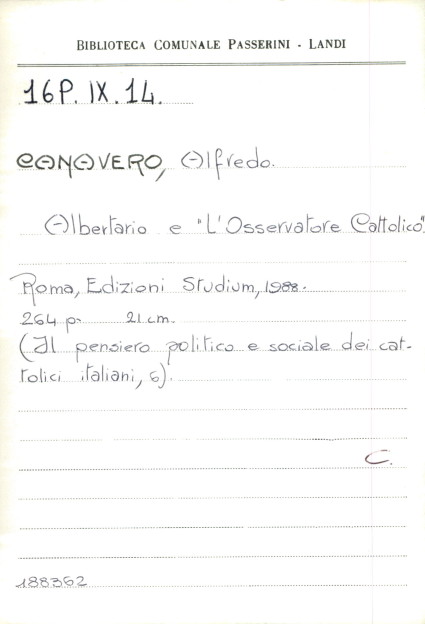 BIBLIOTECA COMUNALE PASSERINI - LANDI
16P. IX. 14.
CANAVERO, Alfredo.
Albertario e "L'Osservatore Cattolico".
Roma, Edizioni Studium, 1988.
264 p. 21 cm.
(Il pensiero politico e sociale dei cat-
tolici italiani, 6).
C.
188362